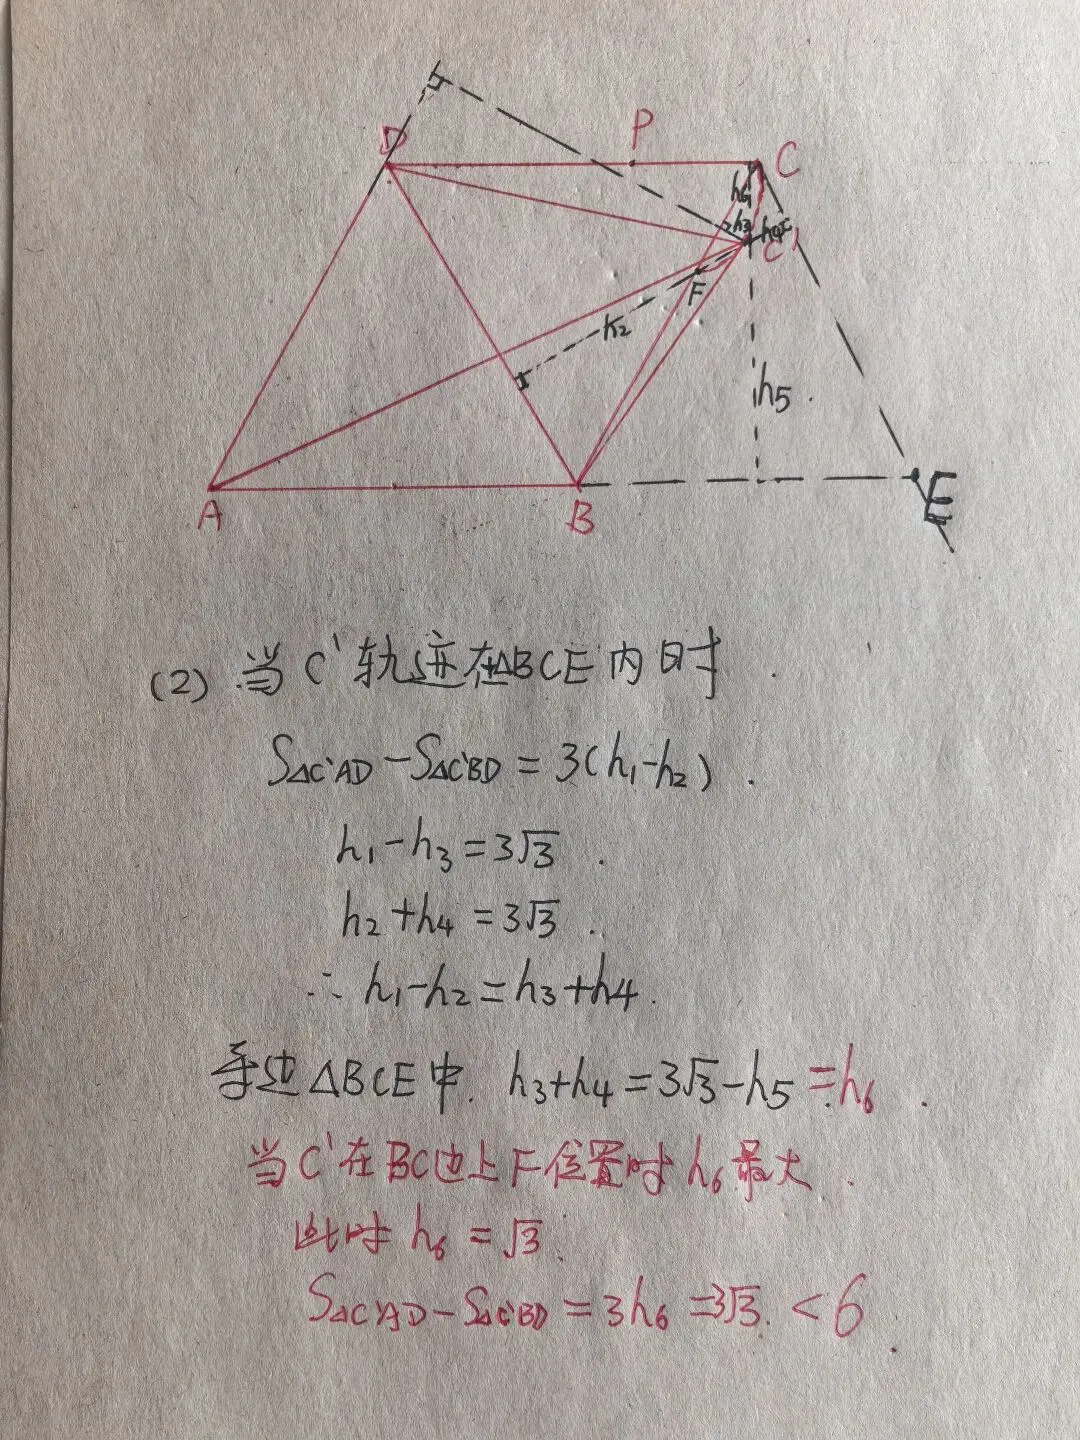 D
P
C
h₆
h₃
h₄
C'
F
h₂
h₅
A
B
E
(2) 当C'轨迹在△BCE内时.
S△C'AD-S△C'BD=3(h₁-h₂).
h₁-h₃=3√3.
h₂+h₄=3√3.
∴h₁-h₂=h₃+h₄.
等边△BCE中. h₃+h₄=3√3-h₅=h₆.
当C'在BC边上F位置时h₆最大.
此时h₆=√3.
S△C'AD-S△C'BD=3h₆=3√3.<6